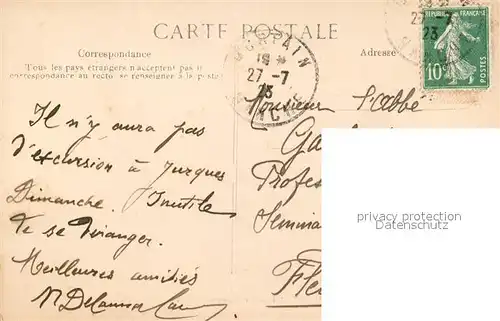 CARTE POSTALE
Correspondance
Tous les pays étrangers n'acceptent pas la
correspondance au recto, se renseigner à la poste
Adresse
MORTAIN
19 *
27-7
23
MANCHE
27-7
23
REPUBLIQUE FRANÇAISE
10c
POSTES
Il n'y aura pas
d'excursion à Jurques
Dimanche. Inutile
de se déranger.
Meilleures amitiés
Monsieur l'Abbé
Ga
Profes
Semina
Fle
privacy protection
Datenschutz